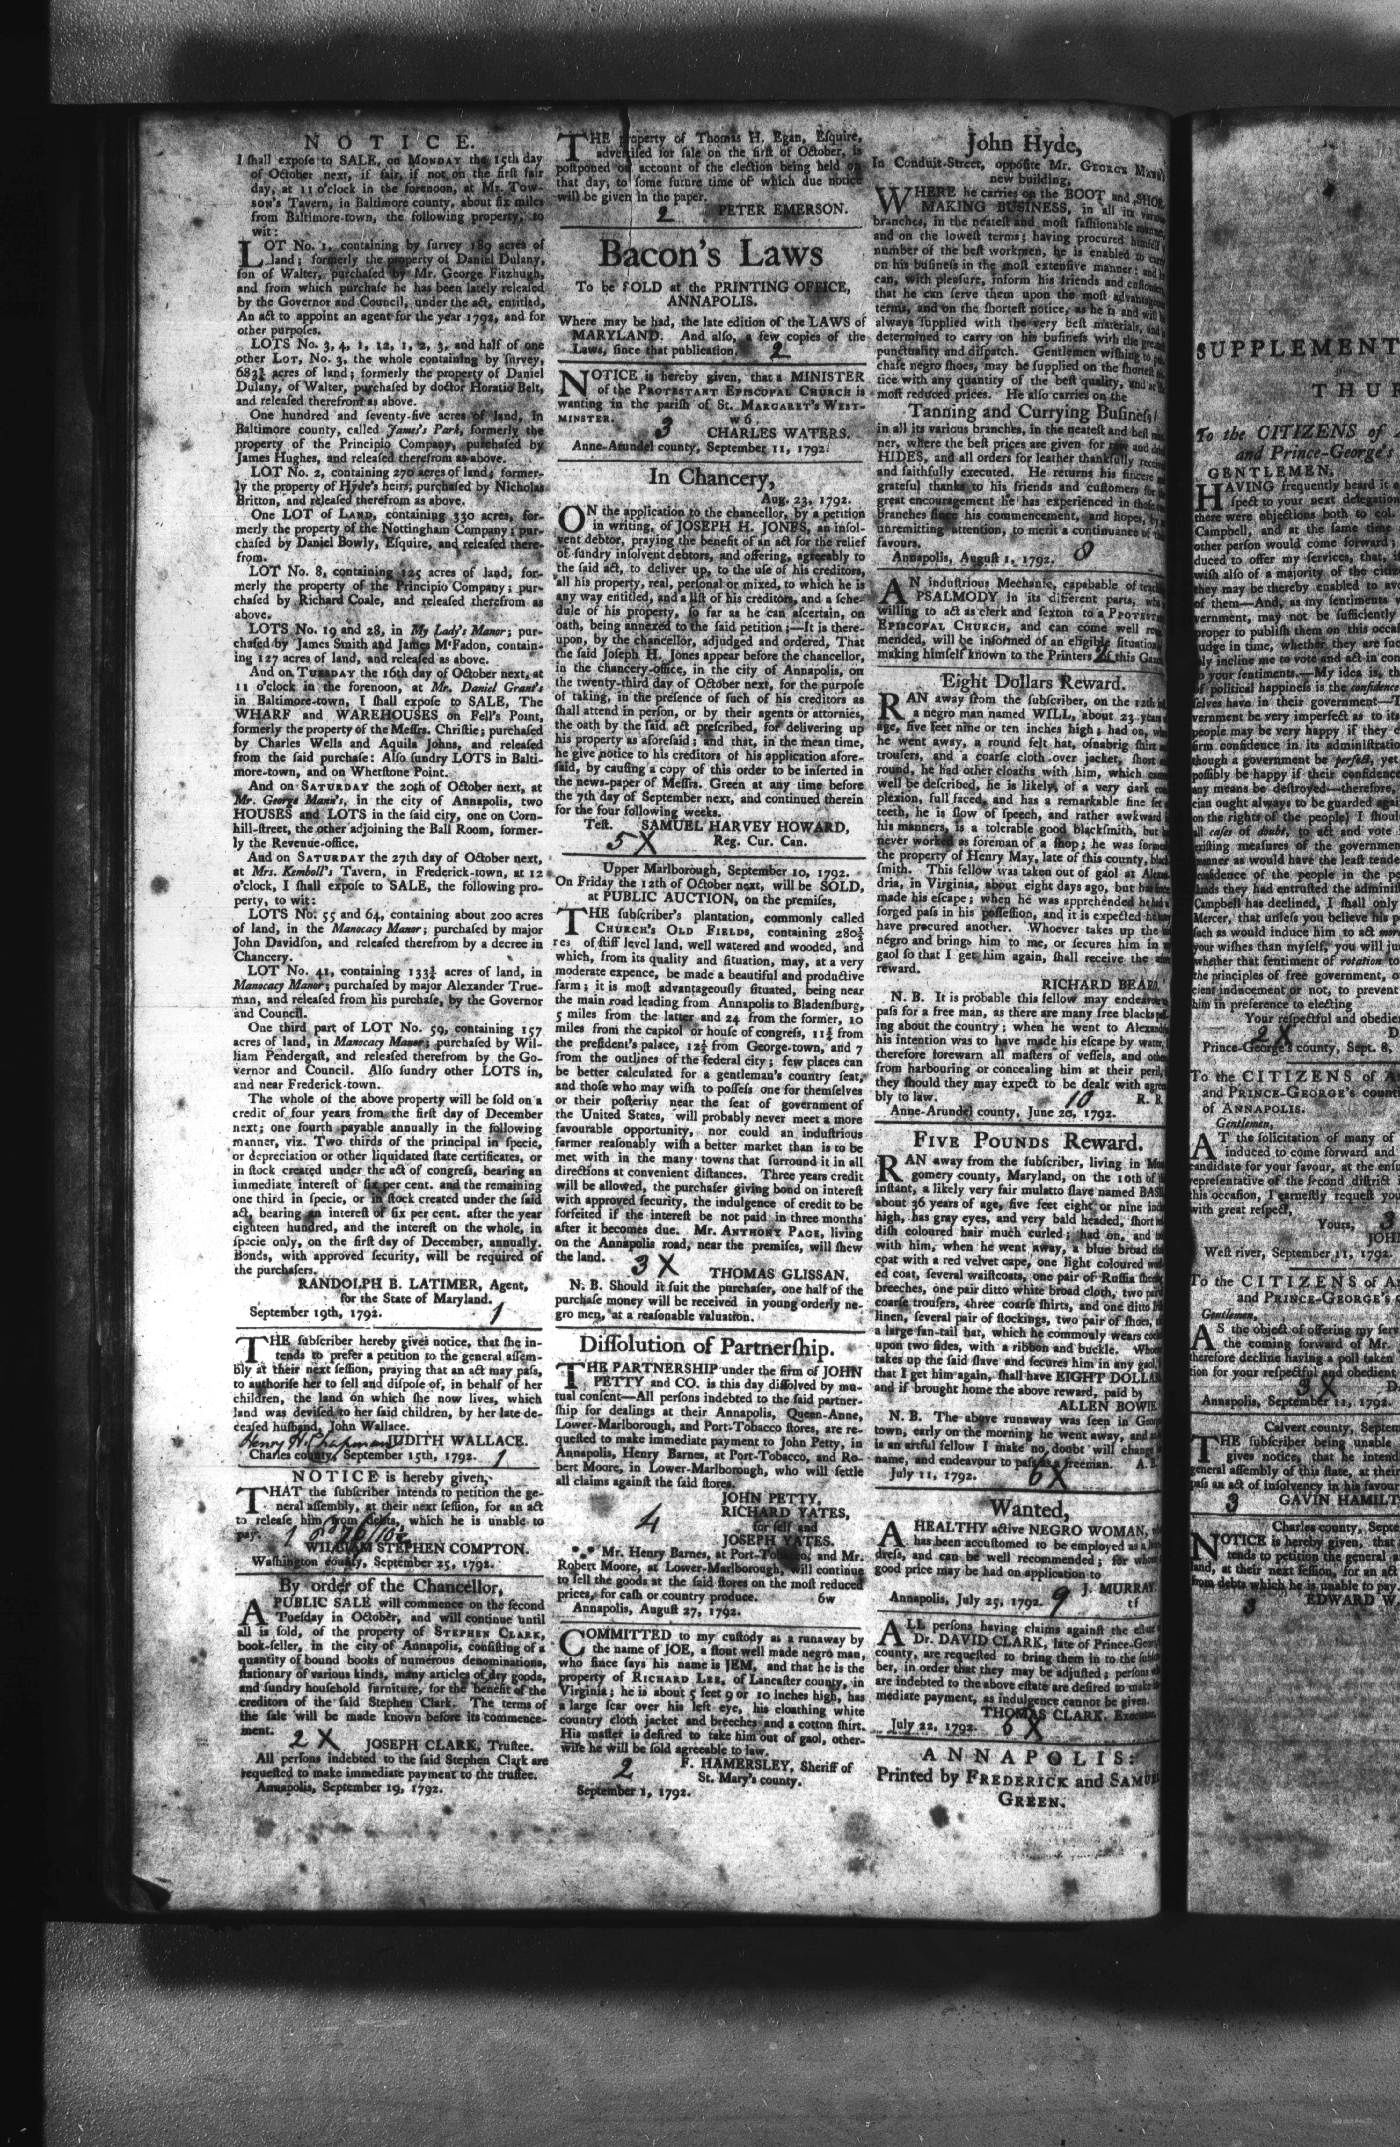 NOTICE.
I shall expose to SALE, on MONDAY the 15th day
of October next, if fair, if not on the first fair
day, at 11 o'clock in the forenoon, at Mr. Tow-
son's Tavern, in Baltimore county, about six miles
from Baltimore-town, the following property, to
wit:
LOT No. 1, containing by survey 189 acres of
land; formerly the property of Daniel Dulany,
son of Walter, purchased by Mr. George Fitzhugh,
and from which purchase he has been lately released
by the Governor and Council, under the act, entitled,
An act to appoint an agent for the year 1792, and for
other purposes.
LOTS No. 3, 4, 1, 12, 1, 2, 3, and half of one
other LOT, No. 3, the whole containing by survey,
683½ acres of land; formerly the property of Daniel
Dulany, of Walter, purchased by doctor Horatio Belt,
and released therefrom as above.
One hundred and seventy-five acres of land, in
Baltimore county, called James's Park, formerly the
property of the Principio Company, purchased by
James Hughes, and released therefrom as above.
LOT No. 2, containing 270 acres of land; former-
ly the property of Hyde's heirs, purchased by Nicholas
Britton, and released therefrom as above.
One LOT of LAND, containing 330 acres, for-
merly the property of the Nottingham Company; pur-
chased by Daniel Bowly, Esquire, and released there-
from.
LOT No. 8, containing 125 acres of land, for-
merly the property of the Principio Company; pur-
chased by Richard Coale, and released therefrom as
above.
LOTS No. 19 and 28, in My Lady's Manor; pur-
chased by James Smith and James M'Fadon, contain-
ing 127 acres of land, and released as above.
And on TUESDAY the 16th day of October next, at
11 o'clock in the forenoon, at Mr. Daniel Grant's
in Baltimore-town, I shall expose to SALE, The
WHARF and WAREHOUSES on Fell's Point,
formerly the property of the Messrs. Christie; purchased
by Charles Wells and Aquila Johns, and released
from the said purchase: Also sundry LOTS in Balti-
more-town, and on Whetstone Point.
And on SATURDAY the 20th of October next, at
Mr. George Mann's, in the city of Annapolis, two
HOUSES and LOTS in the said city, one on Corn-
hill-street, the other adjoining the Ball Room, former-
ly the Revenue-office.
And on SATURDAY the 27th day of October next,
at Mrs. Kemboll's Tavern, in Frederick-town, at 12
o'clock, I shall expose to SALE, the following pro-
perty, to wit:
LOTS No. 55 and 64, containing about 200 acres
of land, in the Manocacy Manor; purchased by major
John Davidson, and released therefrom by a decree in
Chancery.
LOT No. 41, containing 133¾ acres of land, in
Manocacy Manor; purchased by major Alexander True-
man, and released from his purchase, by the Governor
and Council.
One third part of LOT No. 59, containing 157
acres of land, in Manocacy Manor; purchased by Wil-
liam Pendergast, and released therefrom by the Go-
vernor and Council. Also sundry other LOTS in,
and near Frederick-town.
The whole of the above property will be sold on a
credit of four years from the first day of December
next; one fourth payable annually in the following
manner, viz. Two thirds of the principal in specie,
or depreciation or other liquidated state certificates, or
in stock created under the act of congress, bearing an
immediate interest of six per cent. and the remaining
one third in specie, or in stock created under the said
act, bearing an interest of six per cent. after the year
eighteen hundred, and the interest on the whole, in
specie only, on the first day of December, annually.
Bonds, with approved security, will be required of
the purchasers.
RANDOLPH B. LATIMER, Agent,
for the State of Maryland.
September 19th, 1792. 1
THE subscriber hereby gives notice, that she in-
tends to prefer a petition to the general assem-
bly at their next session, praying that an act may pass,
to authorise her to sell and dispose of, in behalf of her
children, the land on which she now lives, which
land was devised to her said children, by her late de-
ceased husband, John Wallace.
Henry H. Chapman JUDITH WALLACE.
Charles county, September 15th, 1792. 1
NOTICE is hereby given,
THAT the subscriber intends to petition the ge-
neral assembly, at their next session, for an act
to release him from debts, which he is unable to
pay. 1
WILLIAM STEPHEN COMPTON.
Washington county, September 25, 1792.
By order of the Chancellor,
A PUBLIC SALE will commence on the second
Tuesday in October, and will continue until
all is sold, of the property of STEPHEN CLARK,
book-seller, in the city of Annapolis, consisting of a
quantity of bound books of numerous denominations,
stationary of various kinds, many articles of dry goods,
and sundry household furniture, for the benefit of the
creditors of the said Stephen Clark. The terms of
the sale will be made known before its commence-
ment.
2 X JOSEPH CLARK, Trustee.
All persons indebted to the said Stephen Clark are
requested to make immediate payment to the trustee.
Annapolis, September 19, 1792.
THE property of Thomas H. Egan, Esquire,
advertised for sale on the first of October, is
postponed on account of the election being held on
that day, to some future time of which due notice
will be given in the paper.
2 PETER EMERSON.
Bacon's Laws
To be SOLD at the PRINTING OFFICE,
ANNAPOLIS.
Where may be had, the late edition of the LAWS of
MARYLAND. And also, a few copies of the
Laws, since that publication. 2
NOTICE is hereby given, that a MINISTER
of the PROTESTANT EPISCOPAL CHURCH is
wanting in the parish of St. MARGARET'S WEST-
MINSTER. w6.
3 CHARLES WATERS.
Anne-Arundel county, September 11, 1792.
In Chancery,
Aug. 23, 1792.
ON the application to the chancellor, by a petition
in writing, of JOSEPH H. JONES, an insol-
vent debtor, praying the benefit of an act for the relief
of sundry insolvent debtors, and offering, agreeably to
the said act, to deliver up, to the use of his creditors,
all his property, real, personal or mixed, to which he is
any way entitled, and a list of his creditors, and a sche-
dule of his property, so far as he can ascertain, on
oath, being annexed to the said petition;—It is there-
upon, by the chancellor, adjudged and ordered, That
the said Joseph H. Jones appear before the chancellor,
in the chancery-office, in the city of Annapolis, on
the twenty-third day of October next, for the purpose
of taking, in the presence of such of his creditors as
shall attend in person, or by their agents or attornies,
the oath by the said act prescribed, for delivering up
his property as aforesaid; and that, in the mean time,
he give notice to his creditors of his application afore-
said, by causing a copy of this order to be inserted in
the news-paper of Messrs. Green at any time before
the 7th day of September next, and continued therein
for the four following weeks.
Test. SAMUEL HARVEY HOWARD,
5 X Reg. Cur. Can.
Upper Marlborough, September 10, 1792.
On Friday the 12th of October next, will be SOLD,
at PUBLIC AUCTION, on the premises,
THE subscriber's plantation, commonly called
CHURCH'S OLD FIELDS, containing 280½
res of stiff level land, well watered and wooded, and
which, from its quality and situation, may, at a very
moderate expence, be made a beautiful and productive
farm; it is most advantageously situated, being near
the main road leading from Annapolis to Bladensburg,
5 miles from the latter and 24 from the former, 10
miles from the capitol or house of congress, 11½ from
the president's palace, 12½ from George-town, and 7
from the outlines of the federal city; few places can
be better calculated for a gentleman's country seat,
and those who may wish to possess one for themselves
or their posterity near the seat of government of
the United States, will probably never meet a more
favourable opportunity, nor could an industrious
farmer reasonably wish a better market than is to be
met with in the many towns that surround it in all
directions at convenient distances. Three years credit
will be allowed, the purchaser giving bond on interest
with approved security, the indulgence of credit to be
forfeited if the interest be not paid in three months
after it becomes due. Mr. ANTHONY PAGE, living
on the Annapolis road, near the premises, will shew
the land. 3 X
THOMAS GLISSAN.
N. B. Should it suit the purchaser, one half of the
purchase money will be received in young orderly ne-
gro men, at a reasonable valuation.
Dissolution of Partnership.
THE PARTNERSHIP under the firm of JOHN
PETTY and CO. is this day dissolved by mu-
tual consent—All persons indebted to the said partner-
ship for dealings at their Annapolis, Queen-Anne,
Lower-Marlborough, and Port-Tobacco stores, are re-
quested to make immediate payment to John Petty, in
Annapolis, Henry Barnes, at Port-Tobacco, and Ro-
bert Moore, in Lower-Marlborough, who will settle
all claims against the said stores.
JOHN PETTY,
4 RICHARD YATES,
for self and
JOSEPH YATES.
*** Mr. Henry Barnes, at Port-Tobacco, and Mr.
Robert Moore, at Lower-Marlborough, will continue
to sell the goods at the said stores on the most reduced
prices, for cash or country produce. 6w
Annapolis, August 27, 1792.
COMMITTED to my custody as a runaway by
the name of JOE, a stout well made negro man,
who since says his name is JEM, and that he is the
property of RICHARD LEE, of Lancaster county, in
Virginia; he is about 5 feet 9 or 10 inches high, has
a large scar over his left eye, his cloathing white
country cloth jacket and breeches and a cotton shirt.
His master is desired to take him out of gaol, other-
wise he will be sold agreeable to law.
2 F. HAMERSLEY, Sheriff of
St. Mary's county.
September 1, 1792.
John Hyde,
In Conduit-Street, opposite Mr. GEORGE MANN's
new building,
WHERE he carries on the BOOT and SHOE
MAKING BUSINESS, in all its various
branches, in the neatest and most fashionable manner,
and on the lowest terms; having procured himself a
number of the best workmen, he is enabled to carry
on his business in the most extensive manner; and he
can, with pleasure, inform his friends and customers
that he can serve them upon the most advantageous
terms, and on the shortest notice, as he is and will be
always supplied with the very best materials, and
determined to carry on his business with the greatest
punctuality and dispatch. Gentlemen wishing to pur-
chase negro shoes, may be supplied on the shortest no-
tice with any quantity of the best quality, and at the
most reduced prices. He also carries on the
Tanning and Currying Business,
in all its various branches, in the neatest and best man-
ner, where the best prices are given for raw and dried
HIDES, and all orders for leather thankfully received
and faithfully executed. He returns his sincere and
grateful thanks to his friends and customers for the
great encouragement he has experienced in those
branches since his commencement, and hopes, by
unremitting attention, to merit a continuance of their
favours.
Annapolis, August 1, 1792. 8
AN industrious Mechanic, capable of teaching
PSALMODY in its different parts, who is
willing to act as clerk and sexton to a PROTESTANT
EPISCOPAL CHURCH, and can come well recom-
mended, will be informed of an eligible situation, by
making himself known to the Printers of this Gazette.
Eight Dollars Reward.
RAN away from the subscriber, on the 12th
a negro man named WILL, about 23 years
age, five feet nine or ten inches high; had on, when
he went away, a round felt hat, osnabrig shirt and
trousers, and a coarse cloth over jacket, short and
round, he had other cloaths with him, which cannot
well be described, he is likely, of a very dark com-
plexion, full faced, and has a remarkable fine set of
teeth, he is slow of speech, and rather awkward in
his manners, is a tolerable good blacksmith, but has
never worked as foreman of a shop; he was formerly
the property of Henry May, late of this county, black-
smith. This fellow was taken out of gaol at Alexan-
dria, in Virginia, about eight days ago, but has since
made his escape; when he was apprehended he had a
forged pass in his possession, and it is expected he may
have procured another. Whoever takes up the
negro and brings him to me, or secures him in
gaol so that I get him again, shall receive the above
reward.
RICHARD BEARD.
N. B. It is probable this fellow may endeavour to
pass for a free man, as there are many free blacks pass-
ing about the country; when he went to Alexandria
his intention was to have made his escape by water,
therefore forewarn all masters of vessels, and others
from harbouring or concealing him at their peril,
they should they may expect to be dealt with agreea-
bly to law. 10 R. B.
Anne-Arundel county, June 20, 1792.
FIVE POUNDS Reward.
RAN away from the subscriber, living in Mont-
gomery county, Maryland, on the 10th of
instant, a likely very fair mulatto slave named BASIL,
about 36 years of age, five feet eight or nine inches
high, has gray eyes, and very bald headed, short red-
dish coloured hair much curled; had on, and took
with him, when he went away, a blue broad cloth
coat with a red velvet cape, one light coloured
ed coat, several waistcoats, one pair of Russia sheeting
breeches, one pair ditto white broad cloth, two pair
coarse trousers, three coarse shirts, and one ditto
linen, several pair of stockings, two pair of shoes,
a large fan-tail hat, which he commonly wears cocked
upon two sides, with a ribbon and buckle. Whoever
takes up the said slave and secures him in any gaol,
that I get him again, shall have EIGHT DOLLARS
and if brought home the above reward, paid by
ALLEN BOWIE
N. B. The above runaway was seen in George-
town, early on the morning he went away, and as he
is an artful fellow I make no doubt will change his
name, and endeavour to pass as a freeman. A. B.
July 11, 1792. 6 X
Wanted,
A HEALTHY active NEGRO WOMAN,
has been accustomed to be employed as a
dress, and can be well recommended; for whom a
good price may be had on application to
J. MURRAY.
Annapolis, July 25, 1792. 9 tf
ALL persons having claims against the estate of
Dr. DAVID CLARK, late of Prince-George's
county, are requested to bring them in to the subscri-
ber, in order that they may be adjusted; persons who
are indebted to the above estate are desired to make im-
mediate payment, as indulgence cannot be given.
THOMAS CLARK. Executor.
July 22, 1792. 6 X
ANNAPOLIS:
Printed by FREDERICK and SAMUEL
GREEN.
SUPPLEMENT
THUR
To the CITIZENS of
and Prince-George's
GENTLEMEN,
HAVING frequently heard it
spect to your next delegation
there were objections both to col.
Campbell, and at the same time
other person would come forward;
duced to offer my services, that,
wish also of a majority of the citiz
they may be thereby enabled to
of them—And, as my sentiments
vernment, may not be sufficiently
proper to publish them on this occa
judge in time, whether they are suc
bly incline me to vote and act in con
to your sentiments.—My idea is, th
of political happiness is the confidence
selves have in their government—T
vernment be very imperfect as to its
people may be very happy if they
firm confidence in its administratio
though a government be perfect, yet
possibly be happy if their confidence
any means be destroyed—therefore,
cian ought always to be guarded aga
on the rights of the people) I should
all cases of doubt, to act and vote
existing measures of the government
manner as would have the least tende
confidence of the people in the pe
hands they had entrusted the administ
Campbell has declined, I shall only
Mercer, that unless you believe his p
such as would induce him to act more
your wishes than myself, you will jud
whether that sentiment of rotation to
the principles of free government,
cient inducement or not, to prevent
him in preference to electing
Your respectful and obedien
2 X D
Prince-George's county, Sept. 8,
To the CITIZENS of A
and PRINCE-GEORGE'S count
of ANNAPOLIS.
Gentlemen,
AT the solicitation of many of
induced to come forward and
candidate for your favour, at the ent
representative of the second district
this occasion, I earnestly request you
with great respect,
Yours, 3
JOHN
West river, September 11, 1792.
To the CITIZENS of A
and PRINCE-GEORGE'S
Gentlemen,
AS the object of offering my serv
the coming forward of Mr.
therefore decline having a poll taken
tion for your respectful and obedient
3 X D
Annapolis, September 12, 1792.
Calvert county, Septem
THE subscriber being unable
gives notice, that he intends
general assembly of this state, at their
pass an act of insolvency in his favour
3 GAVIN HAMILT
Charles county, Sept
NOTICE is hereby given, that
tends to petition the general
land, at their next session, for an act
from debts which he is unable to pay
3 EDWARD W.